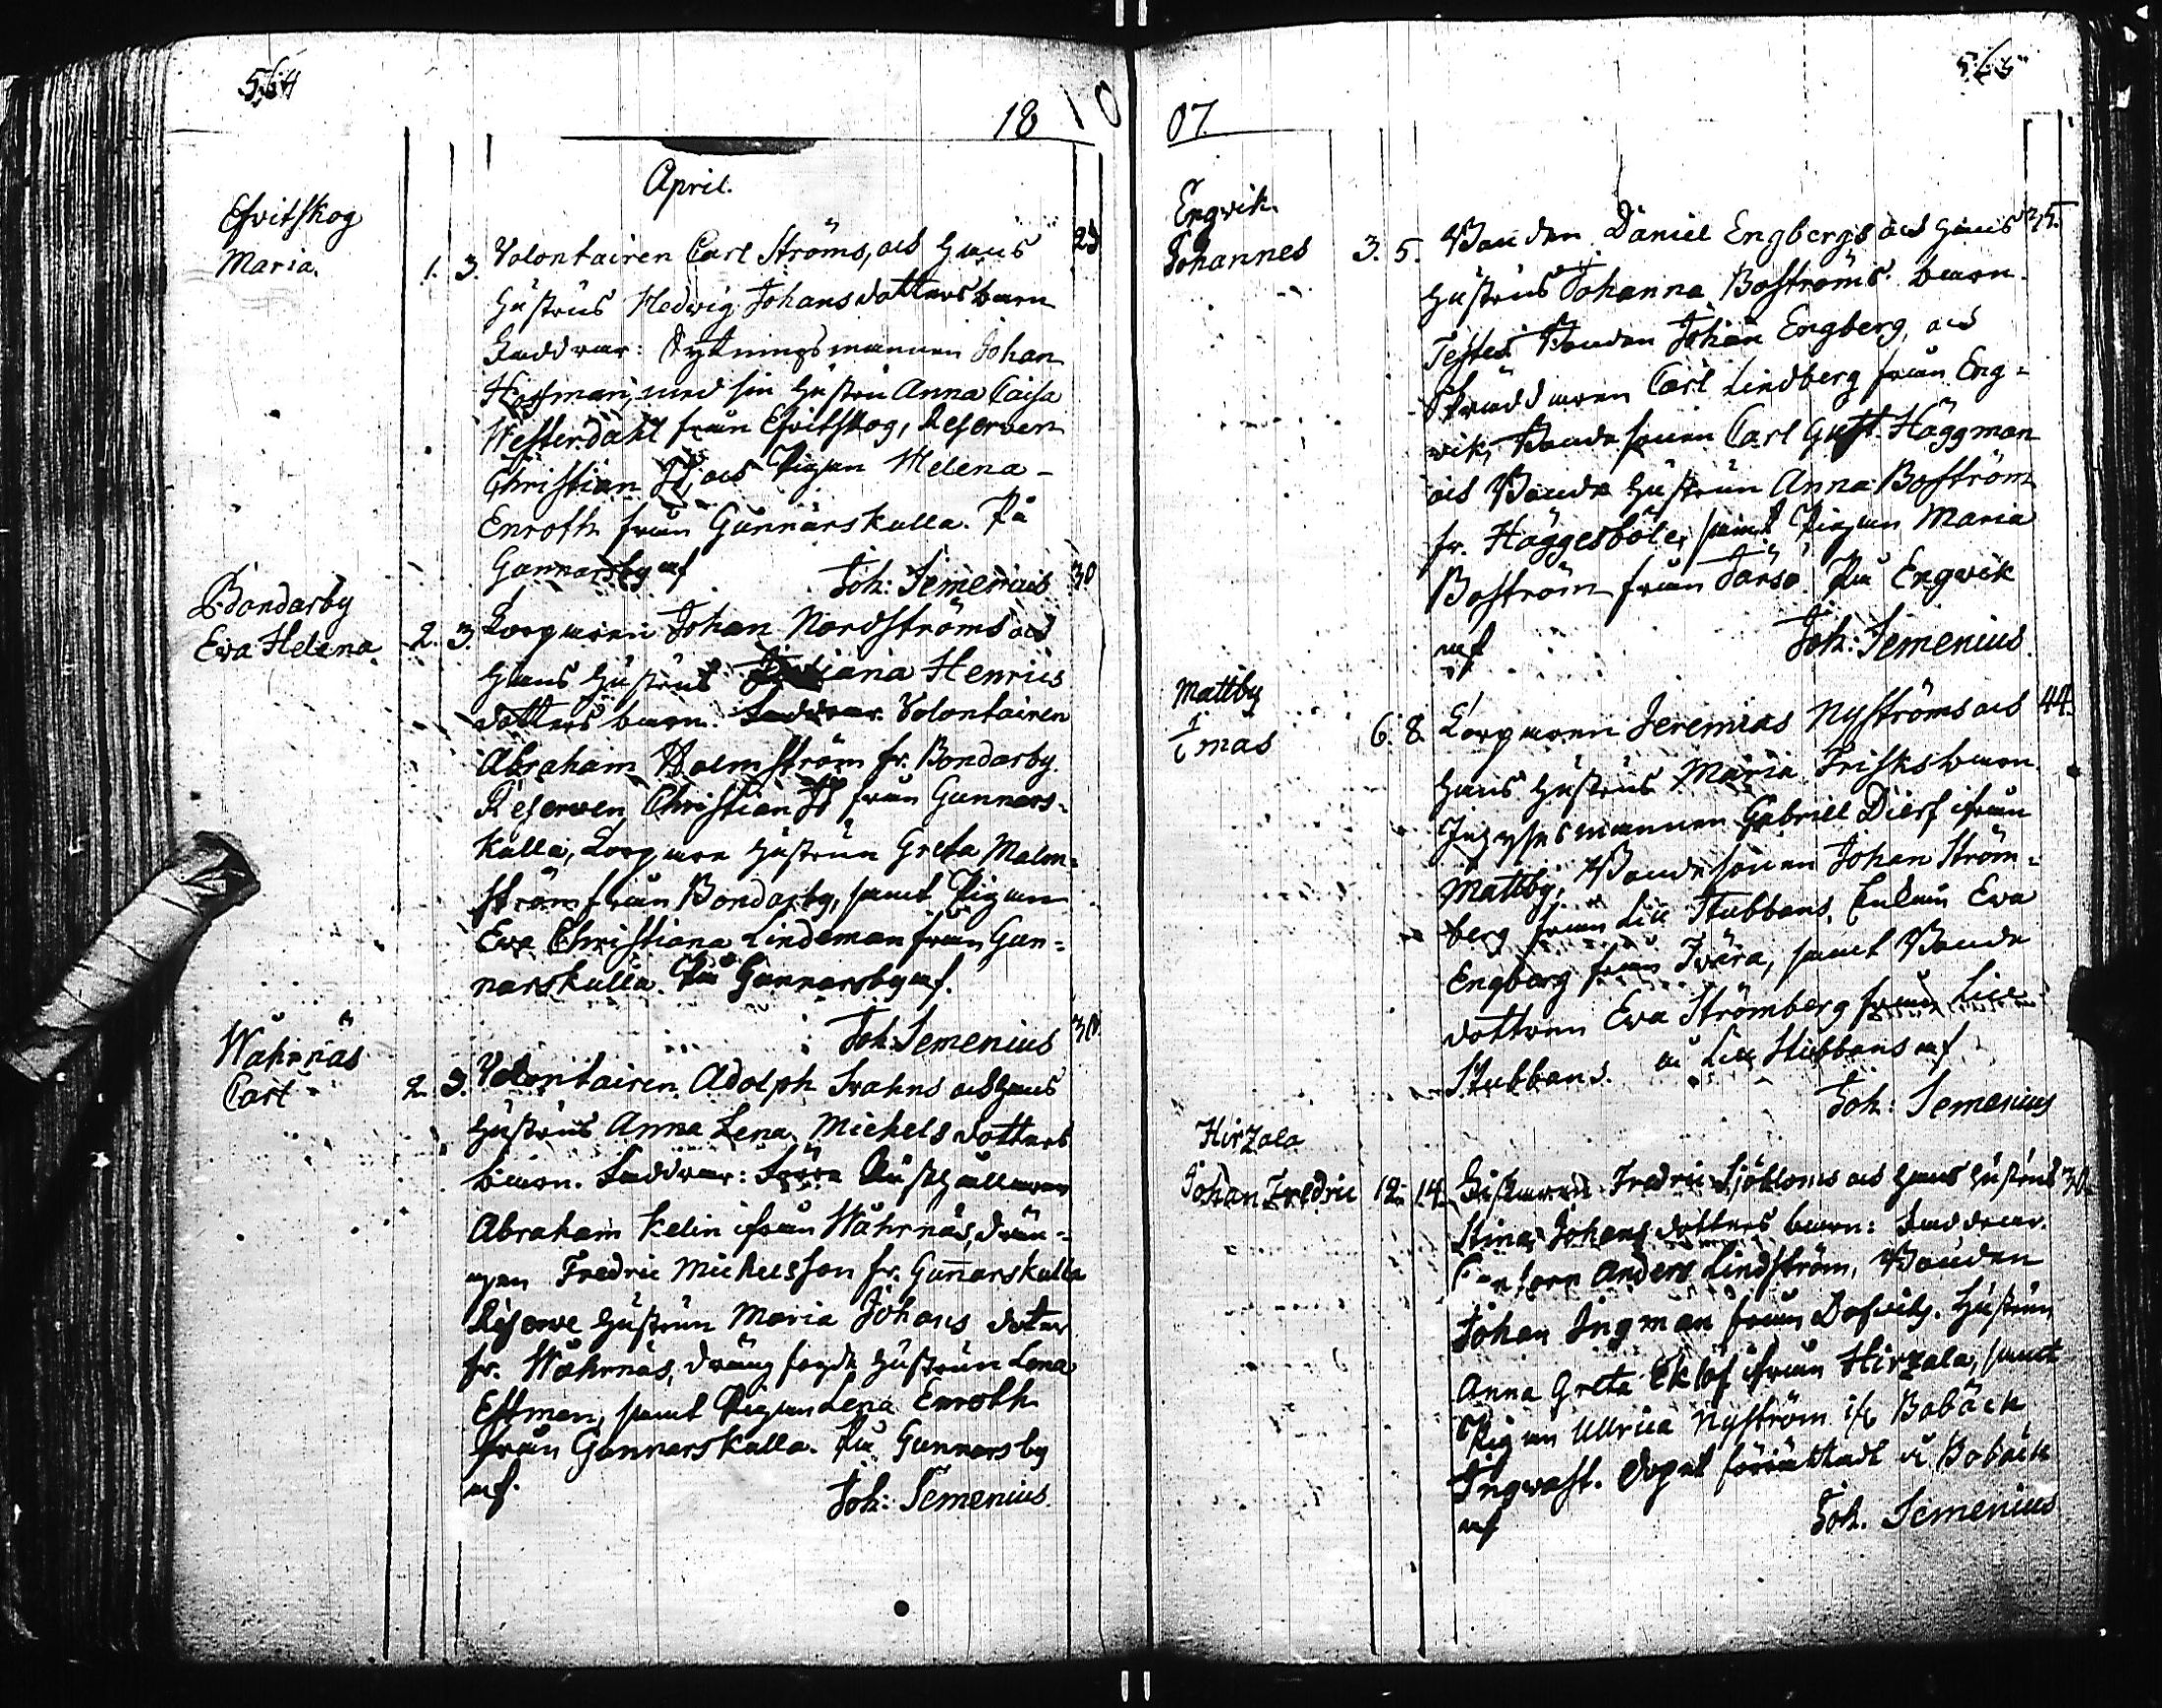 564
18
April.
Esvitskog
Maria.
1. 3. Volontairen Carl Ströms, och Hans 23
Hustrus Hedwig Johansdotters barn
Faddrar: Rytningsmannen Johan
Hoffman, med sin Hustru Anna Caisa
Westerdahl från Esvitskog, Reserven
Christian och Pigan Helena
Enroth från Gunnarskulla. På
Gunnarsby af Joh: Jemenius
Bondarby
Eva Helena
2. 3. Torparen Johan Nordströms och 30
Hans Hustrus Henrics
dotters barn. Faddrar Volontairen
Abraham Holmström fr. Bondarby
Reserven Christian från Gunnars-
kulla, Torpare Hustrun Greta Malm-
ström från Bondarby, samt Pigan
Eva Christiana Lindeman från Gun-
narskulla. På Gunnarsby af.
Joh: Jemenius
Wåhrnäs
Carl
2. 3. Volontairen Adolph Svahns och Hans 30
Hustrus Anna Lena Michelsdotters
barn. Faddrar: Rusthållaren
Abraham Kelin ifrån Wåhrnäs, drän-
gen Fredric Michelsson fr. Gunnarskulla
Reserve Hustrun Maria Johans doter
fr. Wåhrnäs, dräng Hustrun Lena
Estman, samt Pigan Lena Enroth
från Gunnarskulla. På Gunnarsby
af. Joh: Jemenius
565
07
Engvik
Johannes
3. 5. Bonden Daniel Engbergs och Hans 25.
Hustrus Johanna Boströms barn.
Testes Bonden Johan Engberg, och
Skräddaren Carl Lindberg från Eng-
vik, Bondesonen Carl Gust. Häggman
och Bonde Hustrun Anna Boström
fr. Häggesböle, samt Pigan Maria
Boström från Jårsö. På Engvik
af Joh: Jemenius.
Mattby
Tomas
6. 8. Torparen Jeremias Nyströms och 44.
Hans Hustrus Maria Frisks barn
Gabriell Dierf ifrån
Mattby, Bondesonen Johan Ström-
berg från Lill Stubbans, Enkan Eva
Engberg från Ivära, samt Bonde
dottren Eva Strömberg från Lill
Stubbans. å Lill Stubbans af
Joh: Jemenius
Hirzala
Johan Fredric
12. 14. Fiskaren Fredric Sjöbloms och Hans Hustrus 30.
Stina Johansdotters barn: Faddrar
Anders Lindström, Bonden
Johan Ingman från Hustrun
Anna Greta Eklöf ifrån Hirzala, samt
Pigan Ullrica Nyström ifr. Bobäck
Ingvast. Dopet förrättadt å Bobäck
af Joh. Jemenius